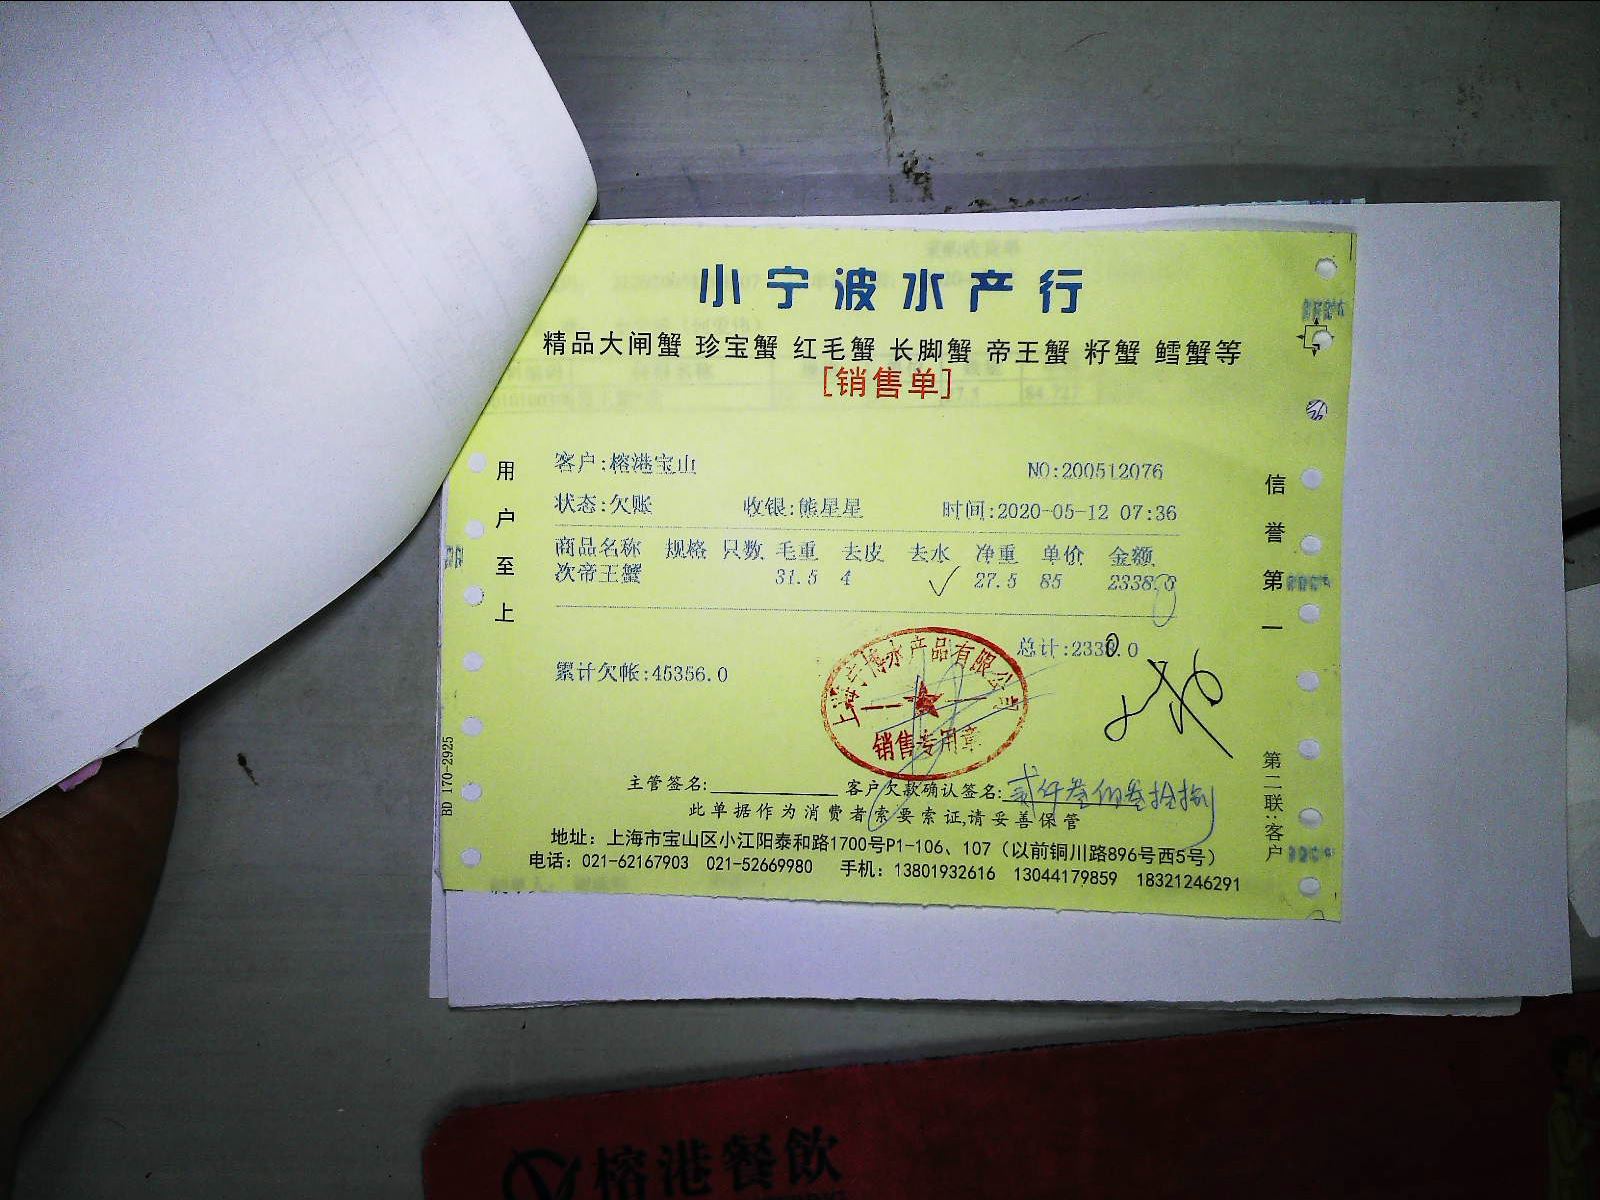 小宁波水产行
精品大闸蟹 珍宝蟹 红毛蟹 长脚蟹 帝王蟹 籽蟹 鳕蟹等
[销售单]
用户至上
信誉第一
客户:榕港宝山
NO:200512076
状态:欠账 收银:熊星星 时间:2020-05-12 07:36
商品名称 规格 只数 毛重 去皮 去水 净重 单价 金额
次帝王蟹 31.5 4 27.5 85 2338.0
总计:2338.0
累计欠帐:45356.0
上海宁博水产品有限公司
销售专用章
主管签名: 客户欠款确认签名:贰仟叁佰叁拾捌
此单据作为消费者索要索证,请妥善保管
地址：上海市宝山区小江阳泰和路1700号P1-106、107（以前铜川路896号西5号）
电话：021-62167903 021-52669980 手机：13801932616 13044179859 18321246291
第二联:客户
BD 170-2925
榕港餐飲